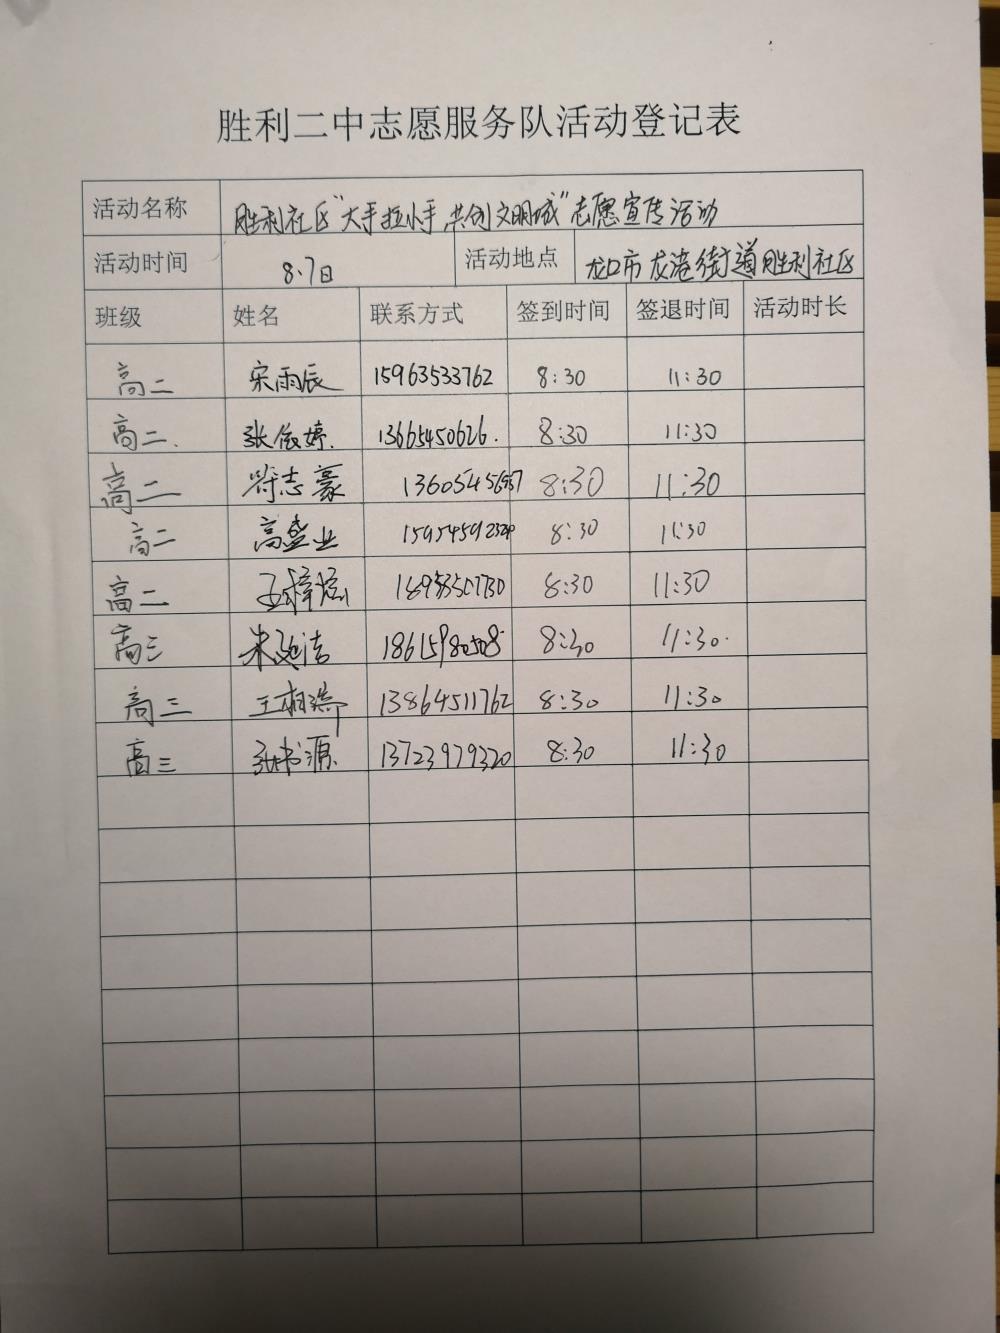 胜利二中志愿服务队活动登记表
活动名称 胜利社区"大手拉小手 共创文明城"志愿宣传活动
活动时间 8.7日 活动地点 龙口市龙港街道胜利社区
班级 姓名 联系方式 签到时间 签退时间 活动时长
高二 宋雨辰 15963533762 8:30 11:30
高二. 张依婷. 13665450626. 8:30 11:30
高二 符志豪 8:30 11:30
高二 高盛业 8:30 11:30
高二 8:30 11:30
高三 朱 洁 8:30 11:30.
高三 王相瑞 13864511762 8:30 11:30
高三 张书源. 13723979320 8:30 11:30